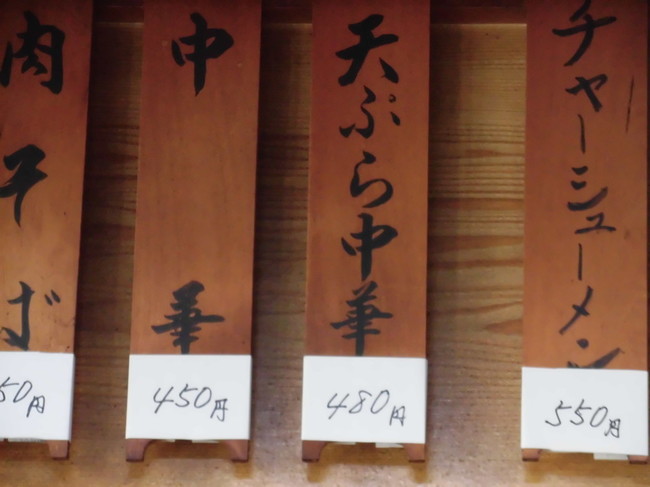 チャーシューメン
550円
天ぷら中華
480円
中華
450円
肉そば
50円